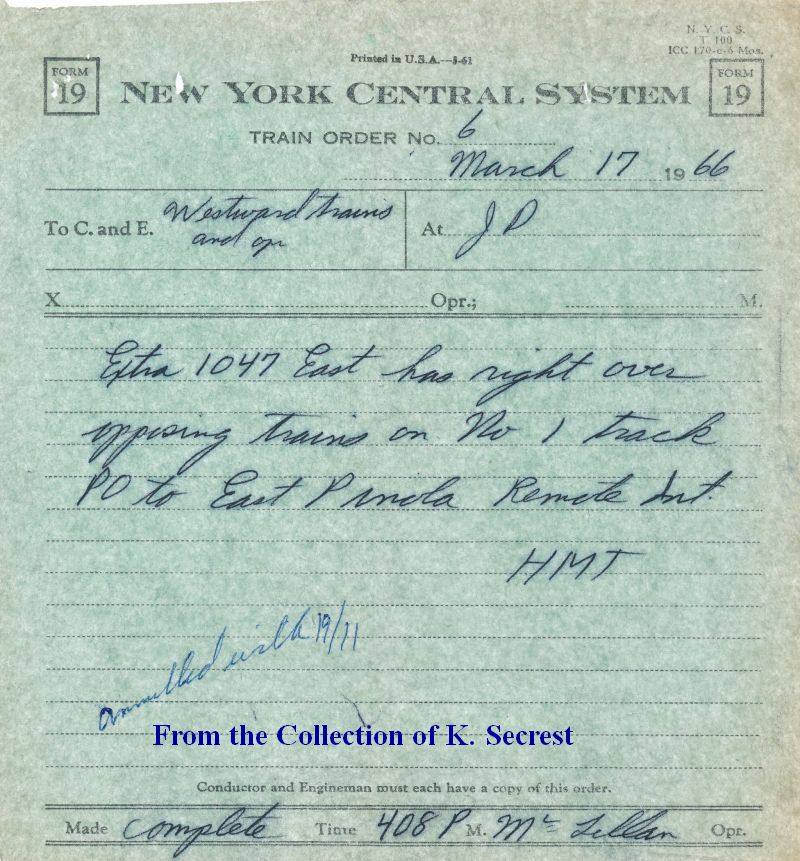 N. Y. C. S.
T. 100
ICC 170-c-6 Mos.
Printed in U.S.A.—3-61
FORM 19
NEW YORK CENTRAL SYSTEM
FORM 19
TRAIN ORDER No. 6
March 17 1966
To C. and E. Westward trains and op
At J P
X Opr.; M.
Extra 1047 East has right over
opposing trains on No 1 track
PO to East Pinola Remote Int.
HMT
annulled with 19/11
From the Collection of K. Secrest
Conductor and Engineman must each have a copy of this order.
Made complete Time 408 P M. McLellan Opr.